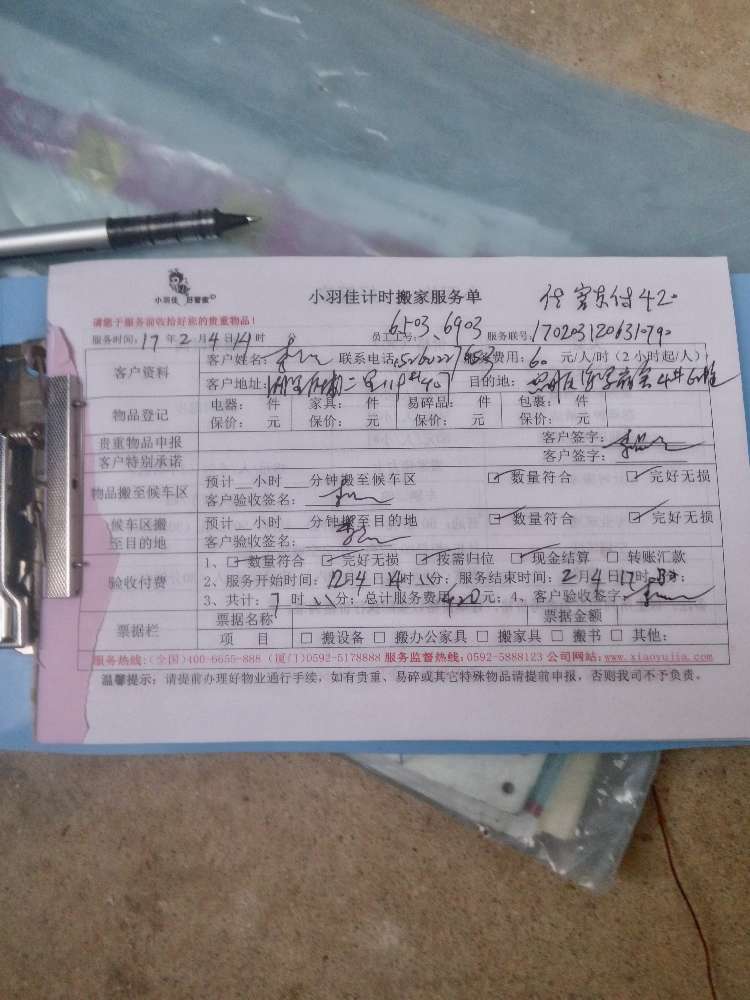 小羽佳 好管家
小羽佳计时搬家服务单
付420
请您于服务前收拾好您的贵重物品!
服务时间:17年2月4日14时 员工工号:6503、6903 服务联号:
客户资料 客户姓名: 联系电话: 费用:60元/人/时(2小时起/人)
客户地址: 目的地:
物品登记 电器: 件 家具: 件 易碎品: 件 包裹: 件
保价: 元 保价: 元 保价: 元 保价: 元
贵重物品申报 客户签字:
客户特别承诺 客户签字:
物品搬至候车区 预计__小时___分钟搬至候车区 ☑数量符合 ☑完好无损
客户验收签名:
候车区搬至目的地 预计__小时___分钟搬至目的地 ☑数量符合 ☑完好无损
客户验收签名:
验收付费 1、☑数量符合 ☑完好无损 ☑按需归位 ☑现金结算 □转账汇款
2、服务开始时间: 月4日14时 分;服务结束时间:2月4日17时 分;
3、共计:7时 分;总计服务费用420元;4、客户验收签字:
票据栏 票据名称 票据金额
项 目 □搬设备 □搬办公家具 □搬家具 □搬书 □其他:
服务热线:(全国)400-6655-888 (厦门)0592-5178888 服务监督热线:0592-5888123 公司网站:www.xiaoyujia.com
温馨提示:请提前办理好物业通行手续,如有贵重、易碎或其它特殊物品请提前申报,否则我司不予负责。